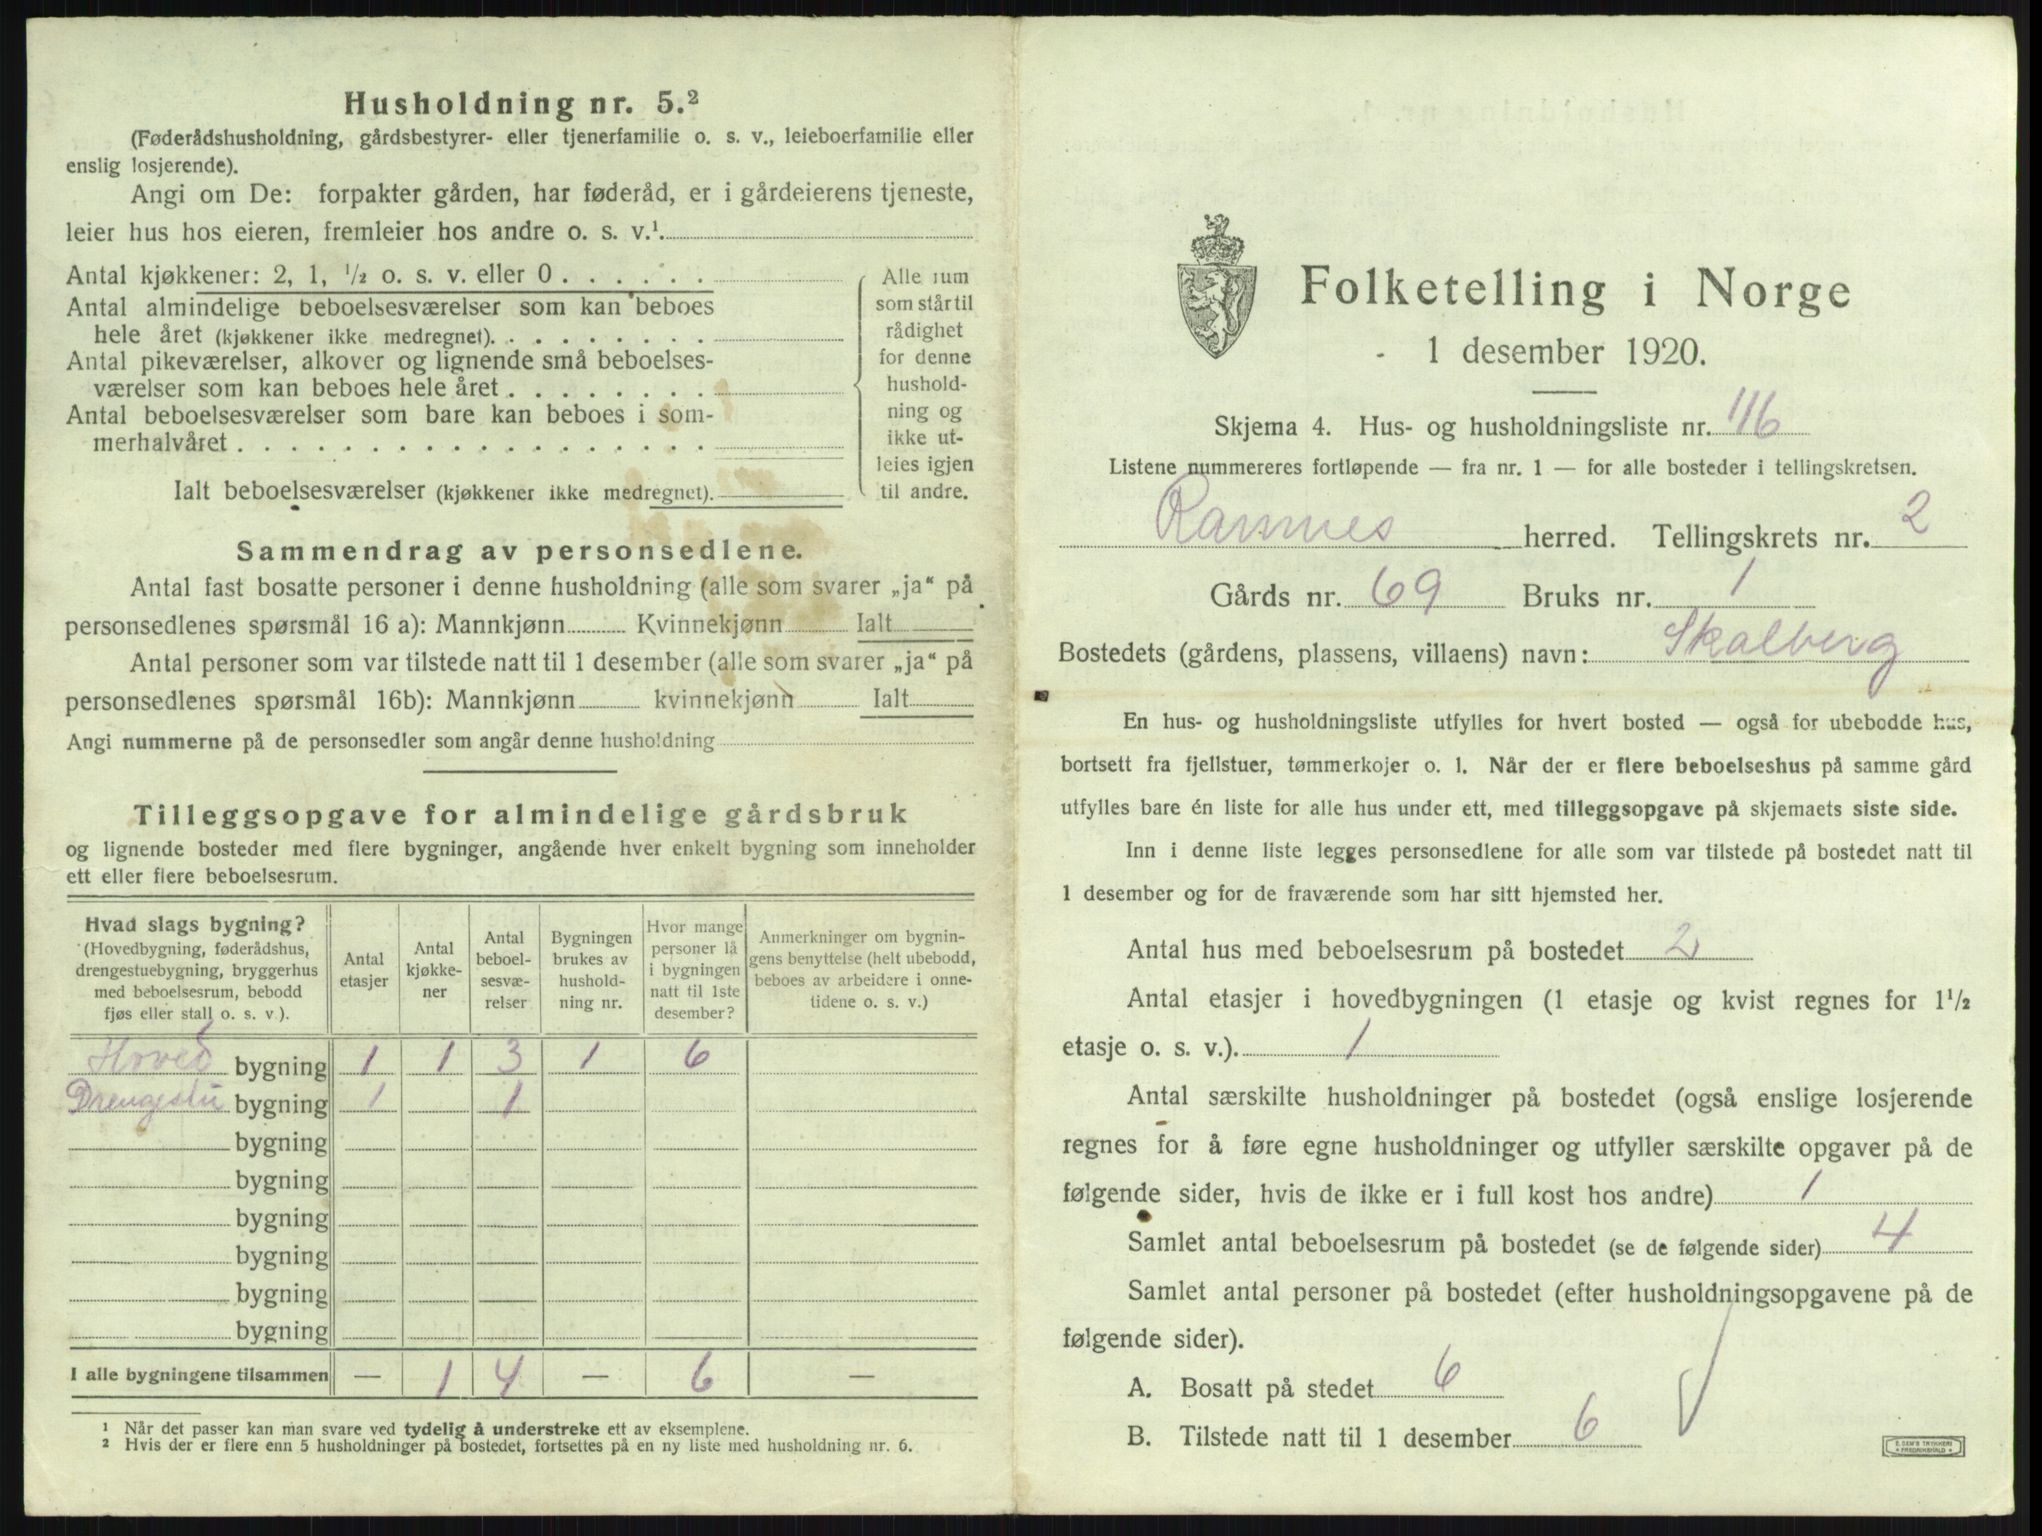 Husholdning nr. 5.²
(Føderådshusholdning, gårdsbestyrer- eller tjenerfamilie o. s. v., leieboerfamilie eller
enslig losjerende).
Angi om De: forpakter gården, har føderåd, er i gårdeierens tjeneste,
leier hus hos eieren, fremleier hos andre o. s. v.¹
Antal kjøkkener: 2, 1, ½ o. s. v. eller 0 . . . . . .
Antal almindelige beboelsesværelser som kan beboes
hele året (kjøkkener ikke medregnet). . . . . . . . .
Antal pikeværelser, alkover og lignende små beboelses-
værelser som kan beboes hele året . . . . . . . .
Antal beboelsesværelser som bare kan beboes i som-
merhalvåret . . . . . . . . . . . . . . . . . .
Ialt beboelsesværelser (kjøkkener ikke medregnet).
Alle rum
som står til
rådighet
for denne
hushold-
ning og
ikke ut-
leies igjen
til andre.
Sammendrag av personsedlene.
Antal fast bosatte personer i denne husholdning (alle som svarer „ja“ på
personsedlenes spørsmål 16 a): Mannkjønn Kvinnekjønn Ialt
Antal personer som var tilstede natt til 1 desember (alle som svarer „ja“ på
personsedlenes spørsmål 16b): Mannkjønn kvinnekjønn Ialt
Angi nummerne på de personsedler som angår denne husholdning
Tilleggsopgave for almindelige gårdsbruk
og lignende bosteder med flere bygninger, angående hver enkelt bygning som inneholder
ett eller flere beboelsesrum.
Hvad slags bygning?
(Hovedbygning, føderådshus,
drengestuebygning, bryggerhus
med beboelsesrum, bebodd
fjøs eller stall o. s. v.).
Antal
etasjer
Antal
kjøkke-
ner
Antal
beboel-
sesvæ-
relser
Bygningen
brukes av
hushold-
ning nr.
Hvor mange
personer lå
i bygningen
natt til 1ste
desember?
Anmerkninger om bygnin-
gens benyttelse (helt ubebodd,
beboes av arbeidere i onne-
tidene o. s. v.)
Hoved bygning 1 1 3 1 6
Drengestu bygning 1 1
bygning
bygning
bygning
bygning
bygning
bygning
I alle bygningene tilsammen — 1 4 — 6 —
¹ Når det passer kan man svare ved tydelig å understreke ett av eksemplene.
² Hvis der er flere enn 5 husholdninger på bostedet, fortsettes på en ny liste med husholdning nr. 6.
Folketelling i Norge
1 desember 1920.
Skjema 4. Hus- og husholdningsliste nr. 116
Listene nummereres fortløpende — fra nr. 1 — for alle bosteder i tellingskretsen.
Ramnes herred. Tellingskrets nr. 2
Gårds nr. 69 Bruks nr. 1
Bostedets (gårdens, plassens, villaens) navn: Skalberg
En hus- og husholdningsliste utfylles for hvert bosted — også for ubebodde hus,
bortsett fra fjellstuer, tømmerkojer o. l. Når der er flere beboelseshus på samme gård
utfylles bare én liste for alle hus under ett, med tilleggsopgave på skjemaets siste side.
Inn i denne liste legges personsedlene for alle som var tilstede på bostedet natt til
1 desember og for de fraværende som har sitt hjemsted her.
Antal hus med beboelsesrum på bostedet 2
Antal etasjer i hovedbygningen (1 etasje og kvist regnes for 1½
etasje o. s. v.). 1
Antal særskilte husholdninger på bostedet (også enslige losjerende
regnes for å føre egne husholdninger og utfyller særskilte opgaver på de
følgende sider, hvis de ikke er i full kost hos andre) 1
Samlet antal beboelsesrum på bostedet (se de følgende sider) 4
Samlet antal personer på bostedet (efter husholdningsopgavene på de
følgende sider).
A. Bosatt på stedet 6
B. Tilstede natt til 1 desember 6